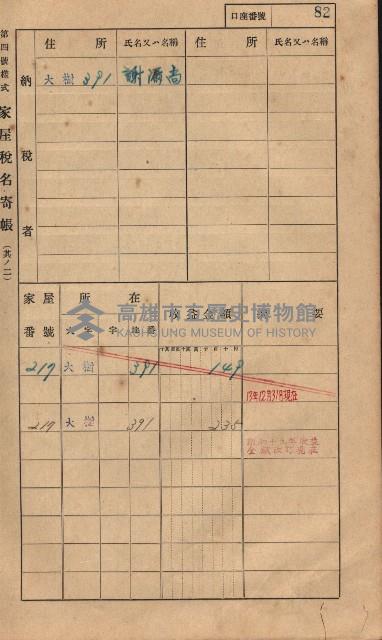 口座番號 82
第四號樣式 家屋稅名寄帳 (其ノ二)
納稅者
住所 氏名又ハ名稱 住所 氏名又ハ名稱
大樹 391 謝
家屋番號 所在 收益金額 要
大字 字 地番
217 大樹 391 149
13年12月31日現在
217 大樹 391 235
昭和十九年收益
金額改訂現在
高雄市立歷史博物館
KAOHSIUNG MUSEUM OF HISTORY